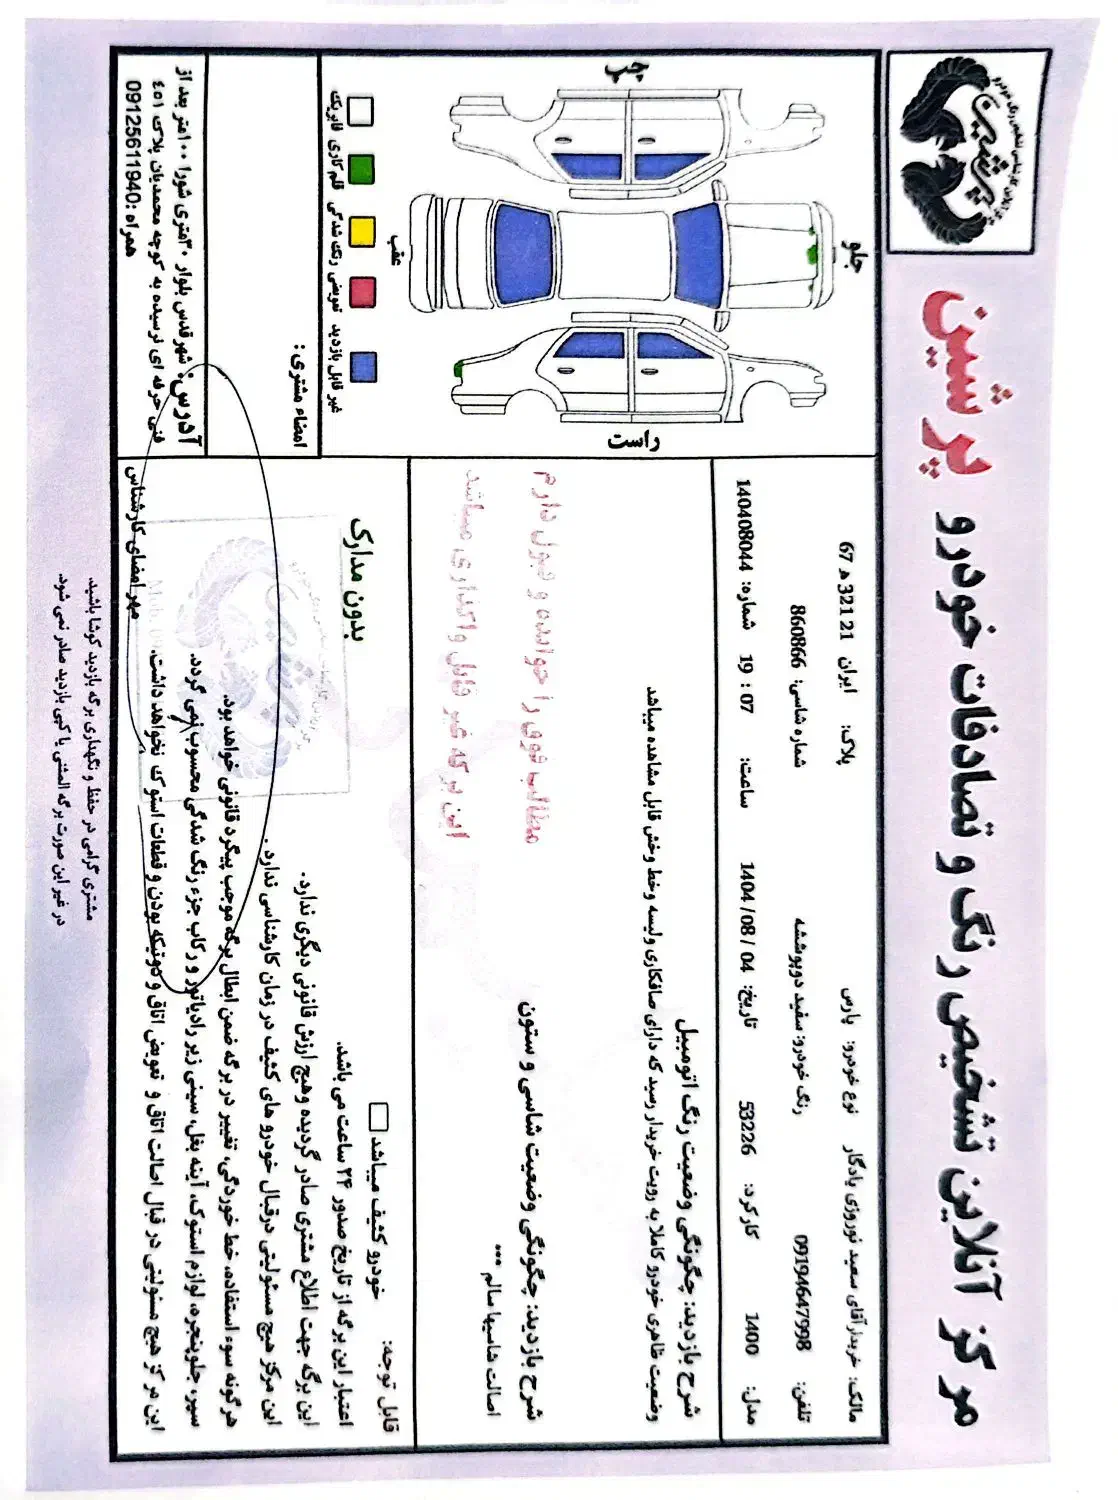 مرکز آنلاین تشخیص رنگ و تصادفات خودرو پرشین
پرشین
مالک: خریدار آقای سعید نوروزی یادگار نوع خودرو: پارس پلاک: ایران 21 321 ه 67
تلفن: 09194647998 رنگ خودرو: سفید دوپوششه شماره شاسی: 860866
مدل: 1400 کارکرد: 53226 تاریخ: 04 / 08 / 1404 ساعت: 07 : 19 شماره: 140408044
شرح بازدید: چگونگی وضعیت رنگ اتومبیل
وضعیت ظاهری خودرو کاملا به رویت خریدار رسید که دارای صافکاری ولیسه وخط وخش قابل مشاهده میباشد
شرح بازدید: چگونگی وضعیت شاسی و ستون
اصالت شاسیها سالم ***
مطالب فوق را خوانده و قبول دارم
این برگه غیر قابل واگذاری میباشد
قابل توجه: خودرو کثیف میباشد
بدون مدارک
اعتبار این برگه از تاریخ صدور ۲۴ ساعت می باشد.
این برگه جهت اطلاع مشتری صادر گردیده وهیچ ارزش قانونی دیگری ندارد.
این مرکز هیچ مسئولیتی درقبال خودرو های کثیف در زمان کارشناسی ندارد.
هرگونه سوء استفاده، خط خوردگی، تغییر در برگه ضمن ابطال برگه موجب پیگرد قانونی خواهد بود.
سپر، جلوپنجره، لوازم استوک، آینه بغل، سینی زیر رادیاتور و رکاب جزء رنگ شدگی محسوب نمی گردد.
این مرکز هیچ مسئولیتی در قبال اصالت اتاق و تعویض اتاق و دوتیکه بودن و قطعات استوک نخواهد داشت.
مهر امضای کارشناس
چپ
جلو
عقب
راست
فابریک
قلم کاری
رنگ شدگی
تعویض
غیر قابل بازدید
امضاء مشتری:
آدرس: شهرقدس بلوار ۳۰متری شورا ۱۰۰متر بعد از
فنی حرفه ای نرسیده به کوچه محمدیان پلاک ٤٥١
همراه: 09125611940
مشتری گرامی در حفظ و نگهداری برگه بازدید کوشا باشید.
در غیر این صورت برگه المثنی یا کپی بازدید صادر نمی شود.